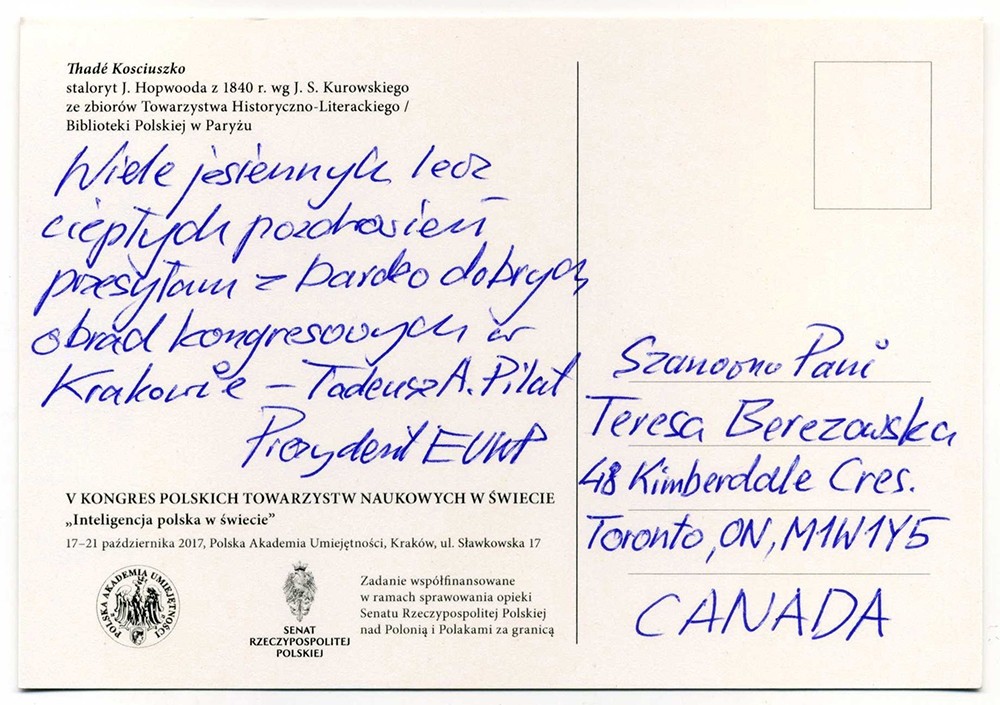 Thadé Kosciuszko
staloryt J. Hopwooda z 1840 r. wg J. S. Kurowskiego
ze zbiorów Towarzystwa Historyczno-Literackiego /
Biblioteki Polskiej w Paryżu
Wiele jesiennych lecz
ciepłych pozdrowień
przesyłam z bardzo dobrych
obrad kongresowych w
Krakowie – Tadeusz A. Pilat
Prezydent EUWP
V KONGRES POLSKICH TOWARZYSTW NAUKOWYCH W ŚWIECIE
„Inteligencja polska w świecie”
17–21 października 2017, Polska Akademia Umiejętności, Kraków, ul. Sławkowska 17
POLSKA AKADEMIA UMIEJĘTNOŚCI
SENAT
RZECZYPOSPOLITEJ
POLSKIEJ
Zadanie współfinansowane
w ramach sprawowania opieki
Senatu Rzeczypospolitej Polskiej
nad Polonią i Polakami za granicą
Szanowna Pani
Teresa Berezowska
48 Kimberdale Cres.
Toronto, ON, M1W1Y5
CANADA